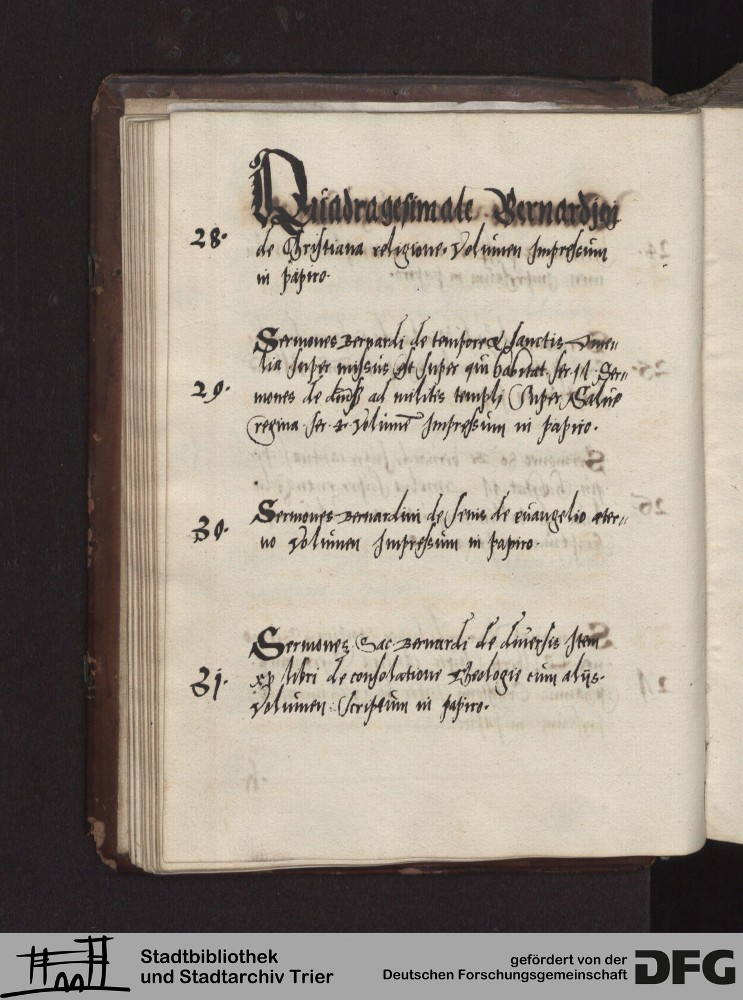 Quadragesimale Bernardini
28. de Christiana religione. Volumen Impressum
in papiro.
Sermones Bernardi de tempore & sanctis Ome=
lia super missus est super qui habitat. ser. 17. Ser=
29. mones de ad militis templi Super Salue
regina. ser. 4. Volume Impressum in papiro.
Sermones Bernardini de senis de euangelio eter=
30. no Volumen Impressum in papiro.
Sermones Bernardi de diuersis Item
31. libri de consolatione Theologie cum alijs.
Volumen Scriptum in papiro.
Stadtbibliothek
und Stadtarchiv Trier
gefördert von der
Deutschen Forschungsgemeinschaft
DFG